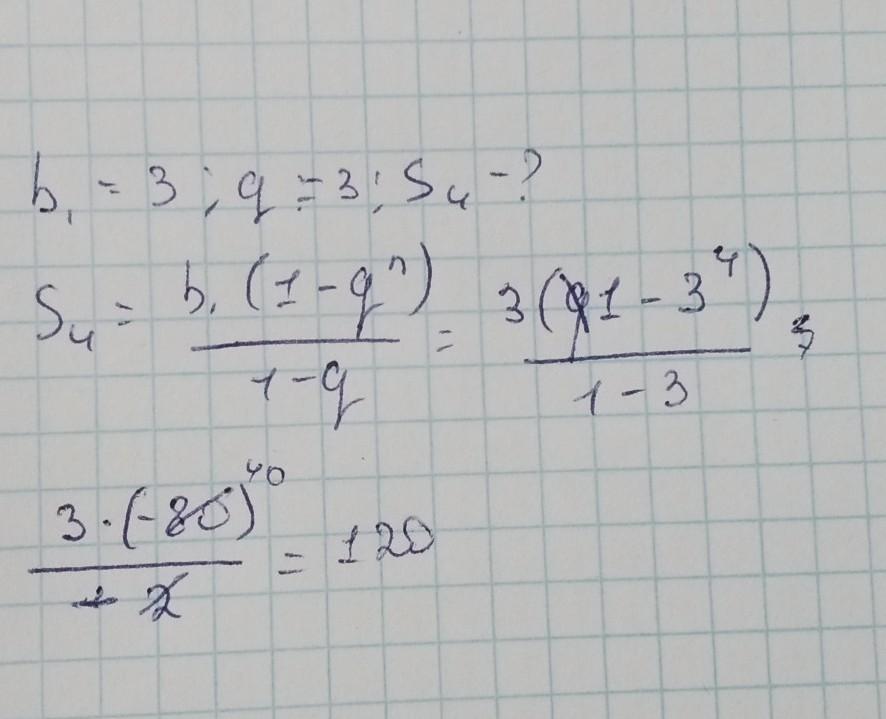 b₁ = 3 ; q = 3 ; S₄ - ?
S₄ = b₁ (1 - qⁿ) / 1 - q = 3 (1 - 3⁴) / 1 - 3
3 · (-80)⁴⁰ / - 2 = 120